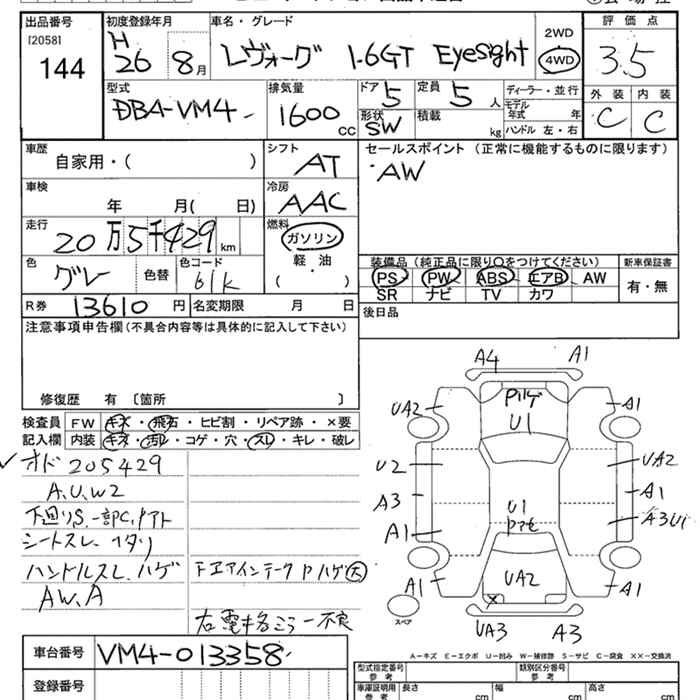 出品番号
[2058]
144
初度登録年月
H 26 8月
車名・グレード
レヴォーグ 1.6GT EyeSight
2WD
4WD
評価点
3.5
外装 内装
C C
型式
DBA-VM4
排気量
1600 cc
ドア 5
形状 SW
定員 5 人
積載 kg
ディーラー・並行
モデル年式 年
ハンドル 左・右
車歴
自家用・( )
シフト
AT
セールスポイント (正常に機能するものに限ります)
・AW
車検
年 月( 日)
冷房
AAC
走行
20万5千429 km
燃料
ガソリン
軽・油
( )
色
グレー
色替
色コード
61K
装備品(純正品に限り○をつけてください)
新車保証書
PS PW ABS エアB AW
SR ナビ TV カワ
有・無
R券 13610 円
名変期限 月 日
後日品
注意事項申告欄(不具合内容等は具体的に記入して下さい)
修復歴 有 〔箇所 〕
検査員 FW キズ・飛石・ヒビ割・リペア跡・×要
記入欄 内装 キズ・汚レ・コゲ・穴・スレ・キレ・破レ
オド 205429
A.U.W2
下回りS.一部C.
シートスレ.
ハンドルスレ.ハゲ
下エアインテークPハゲ大
AW.A
A4 A1
Pハゲ
U1
UA2 A1
U2 UA2
A3 A1
U1
A1 A3U1
A1 UA2 A1
X
スペア
UA3 A3
A-キズ E-エクボ U-凹み W-補修跡 S-サビ C-腐食 XX-交換済
車台番号 VM4-013358
登録番号
型式指定番号 参考
類別区分番号 参考
車庫証明用 参考
長さ cm
幅 cm
高さ cm